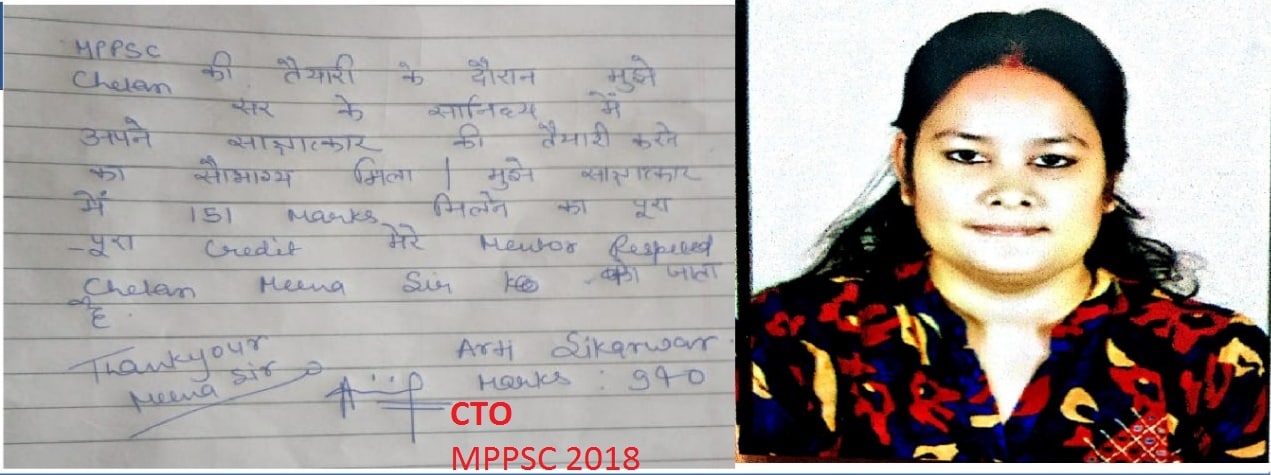 MPPSC
Chetan की तैयारी के दौरान मुझे
सर के सानिध्य में
अपने साक्षात्कार की तैयारी करने
का सौभाग्य मिला | मुझे साक्षात्कार
में 151 Marks मिलने का पूरा
-पूरा Credit मेरे Mentor Respected
Chetan Meena Sir को जाता
है
Thankyour
Meena Sir
Arti Sikarwar
Marks : 940
CTO
MPPSC 2018